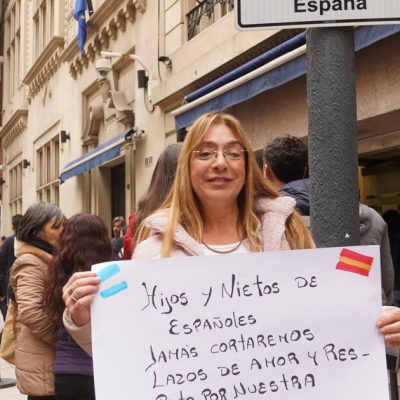 España
Hijos y Nietos de
Españoles
Jamás cortaremos
Lazos de amor y Res-
peto por nuestra